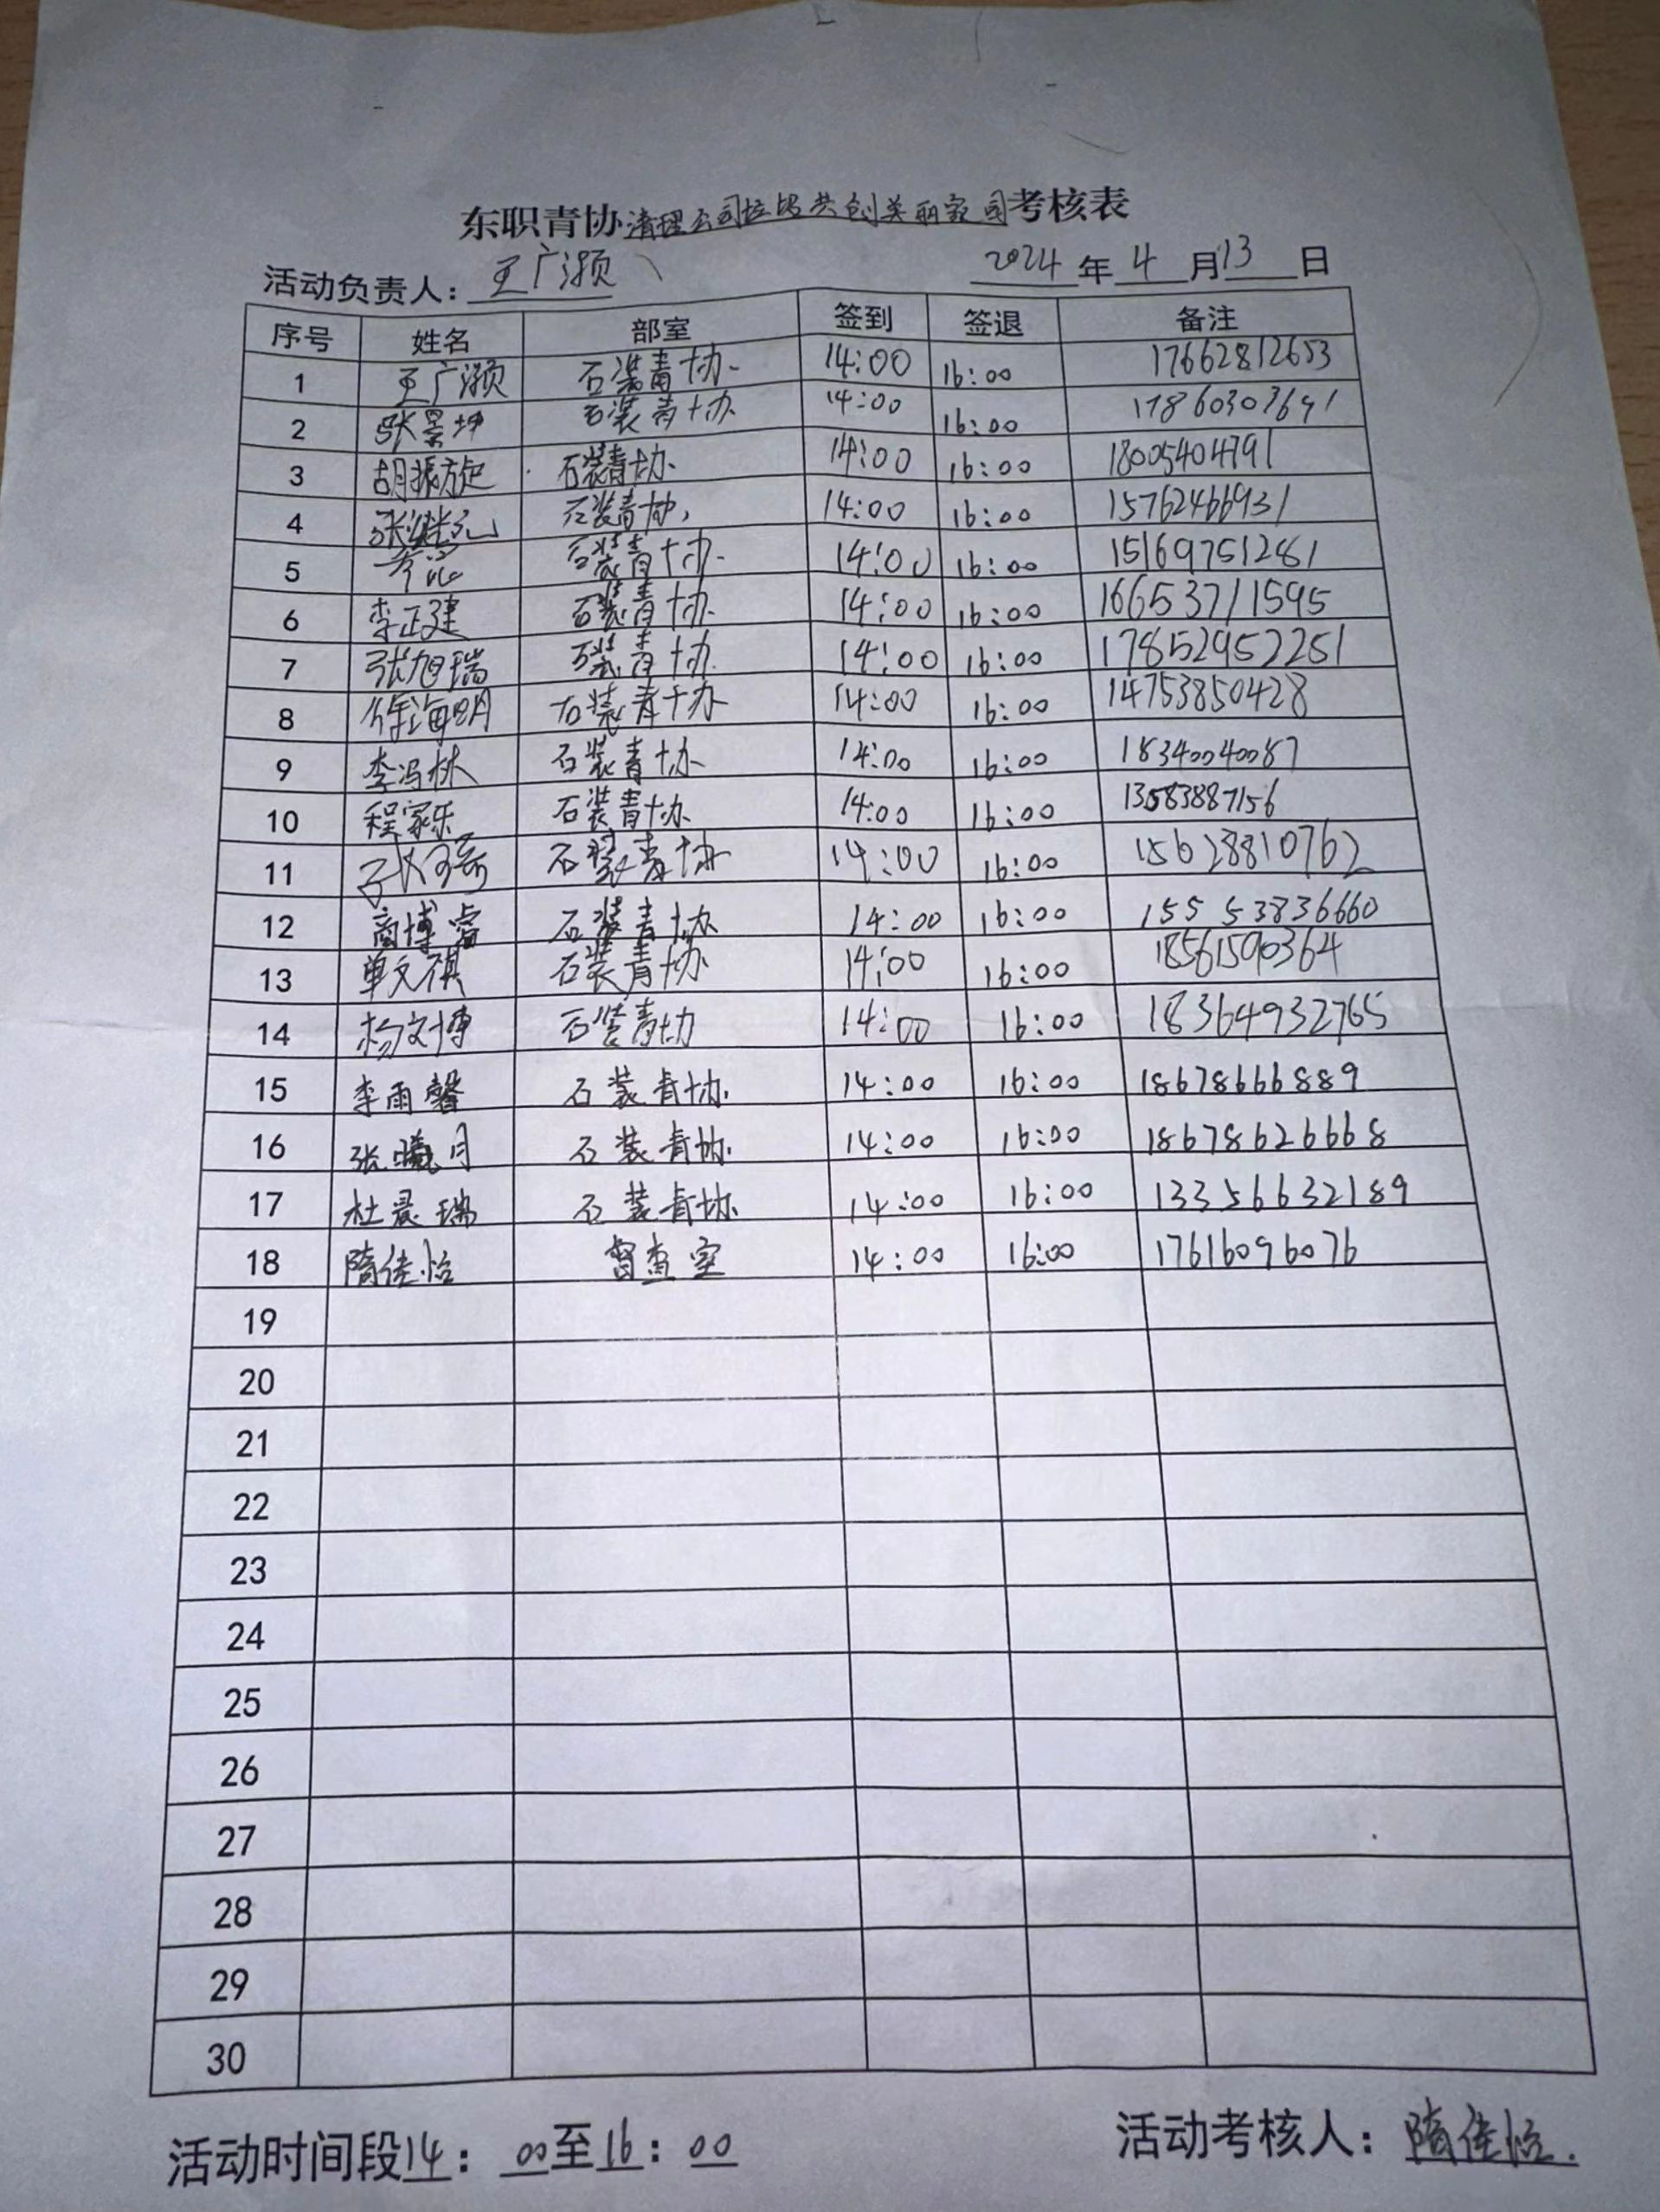 东职青协清理公司垃圾共创美丽家园考核表
活动负责人：王广灏 2024年4月13日
序号 姓名 部室 签到 签退 备注
1 王广灏 石装青协 14:00 16:00 17662812653
2 张景坤 石装青协 14:00 16:00 17860303691
3 胡振旋 石装青协 14:00 16:00 18005404791
4 张继元 石装青协 14:00 16:00 15762466931
5 石装青协 14:00 16:00 15169751281
6 李正建 石装青协 14:00 16:00 16653711595
7 张旭瑞 石装青协 14:00 16:00 17852952251
8 徐海明 石装青协 14:00 16:00 14753850428
9 李冯林 石装青协 14:00 16:00 18340040087
10 程家乐 石装青协 14:00 16:00 13583887156
11 石装青协 14:00 16:00 15628810762
12 商博睿 石装青协 14:00 16:00 15553836660
13 单文祺 石装青协 14:00 16:00 18561590364
14 杨文博 石装青协 14:00 16:00 18364932765
15 李雨馨 石装青协 14:00 16:00 18678666889
16 张曦月 石装青协 14:00 16:00 18678626668
17 杜晨瑞 石装青协 14:00 16:00 13356632189
18 隋佳怡 督查室 14:00 16:00 17616096076
19
20
21
22
23
24
25
26
27
28
29
30
活动时间段14：00至16：00 活动考核人：隋佳怡.